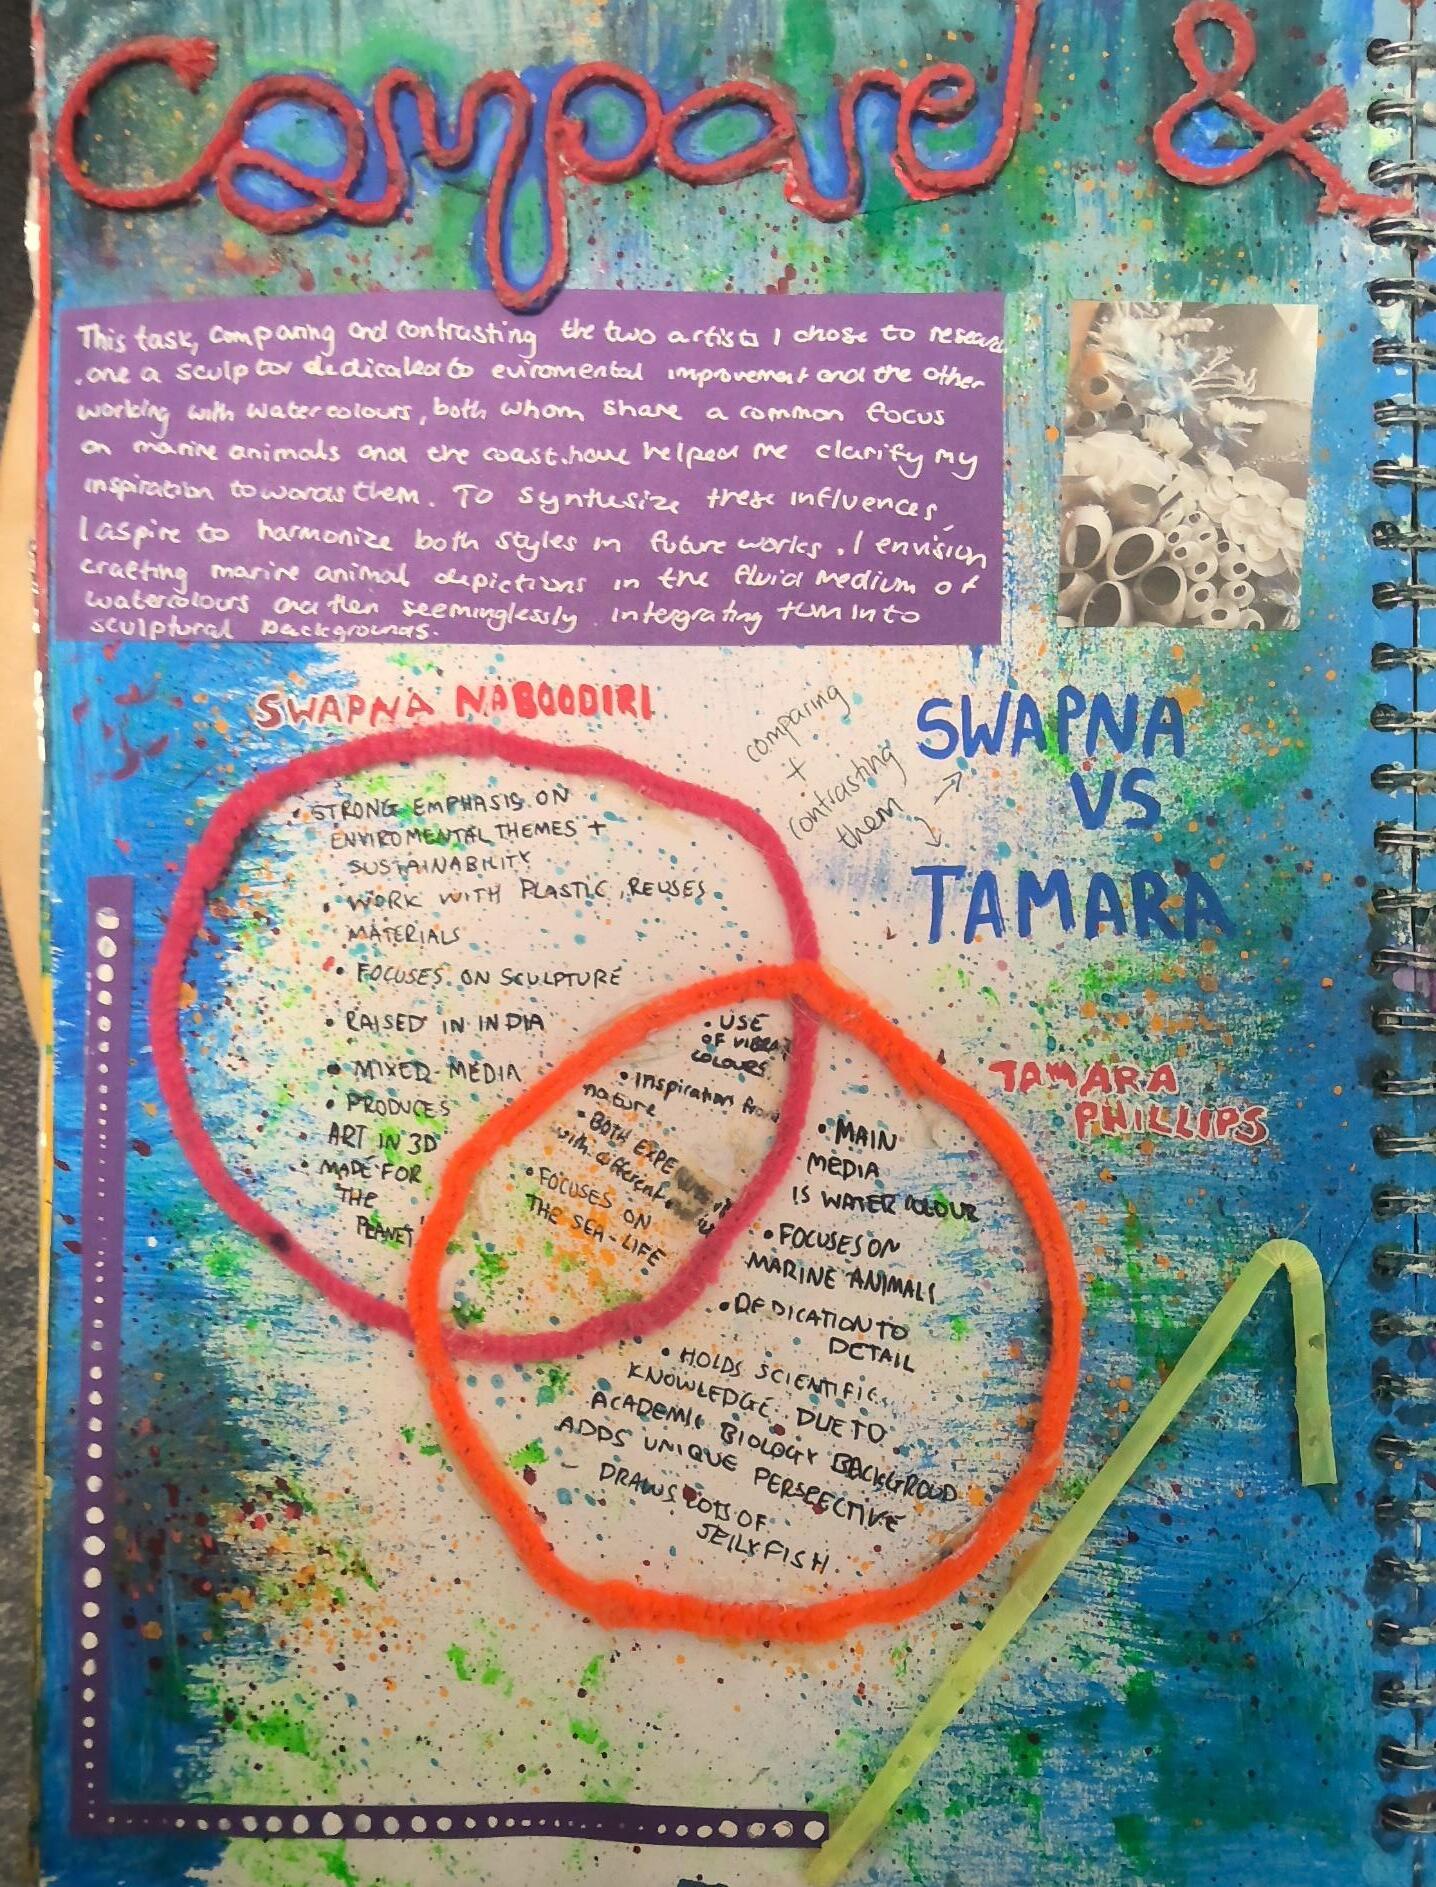 Compare &
This task, comparing and contrasting the two artists I chose to research
, one a sculptor dedicated to enviromental improvement and the other
working with watercolours, both whom share a common focus
on marine animals and the coast. have helped me clarify my
inspiration towards them. To synthesize these influences,
I aspire to harmonize both styles in future works. I envision
crafting marine animal depictions in the fluid medium of
watercolours and then seeminglessly intergrating them into
sculptural backgrounds.
SWAPNA NABOODIRI
comparing
+
contrasting
them
SWAPNA
VS
TAMARA
• STRONG EMPHASIS ON
ENVIROMENTAL THEMES +
SUSTAINABILITY
• WORK WITH PLASTIC, REUSES
MATERIALS
• FOCUSES ON SCULPTURE
• RAISED IN INDIA
• MIXED MEDIA
• PRODUCES
ART IN 3D
• MADE FOR
THE
PLANET
• USE
OF VIBRA
COLOURS
• Inspiration from
nature
• BOTH EXPE
with different
• FOCUSES ON
THE SEA-LIFE
TAMARA
PHILLIPS
• MAIN
MEDIA
IS WATER COLOUR
• FOCUSES ON
MARINE ANIMALS
• DEDICATION TO
DETAIL
• HOLDS SCIENTIFIC
KNOWLEDGE DUE TO
ACADEMIC BIOLOGY BACKGROUD
ADDS UNIQUE PERSPECTIVE
- DRAWS LOTS OF
JELLYFISH